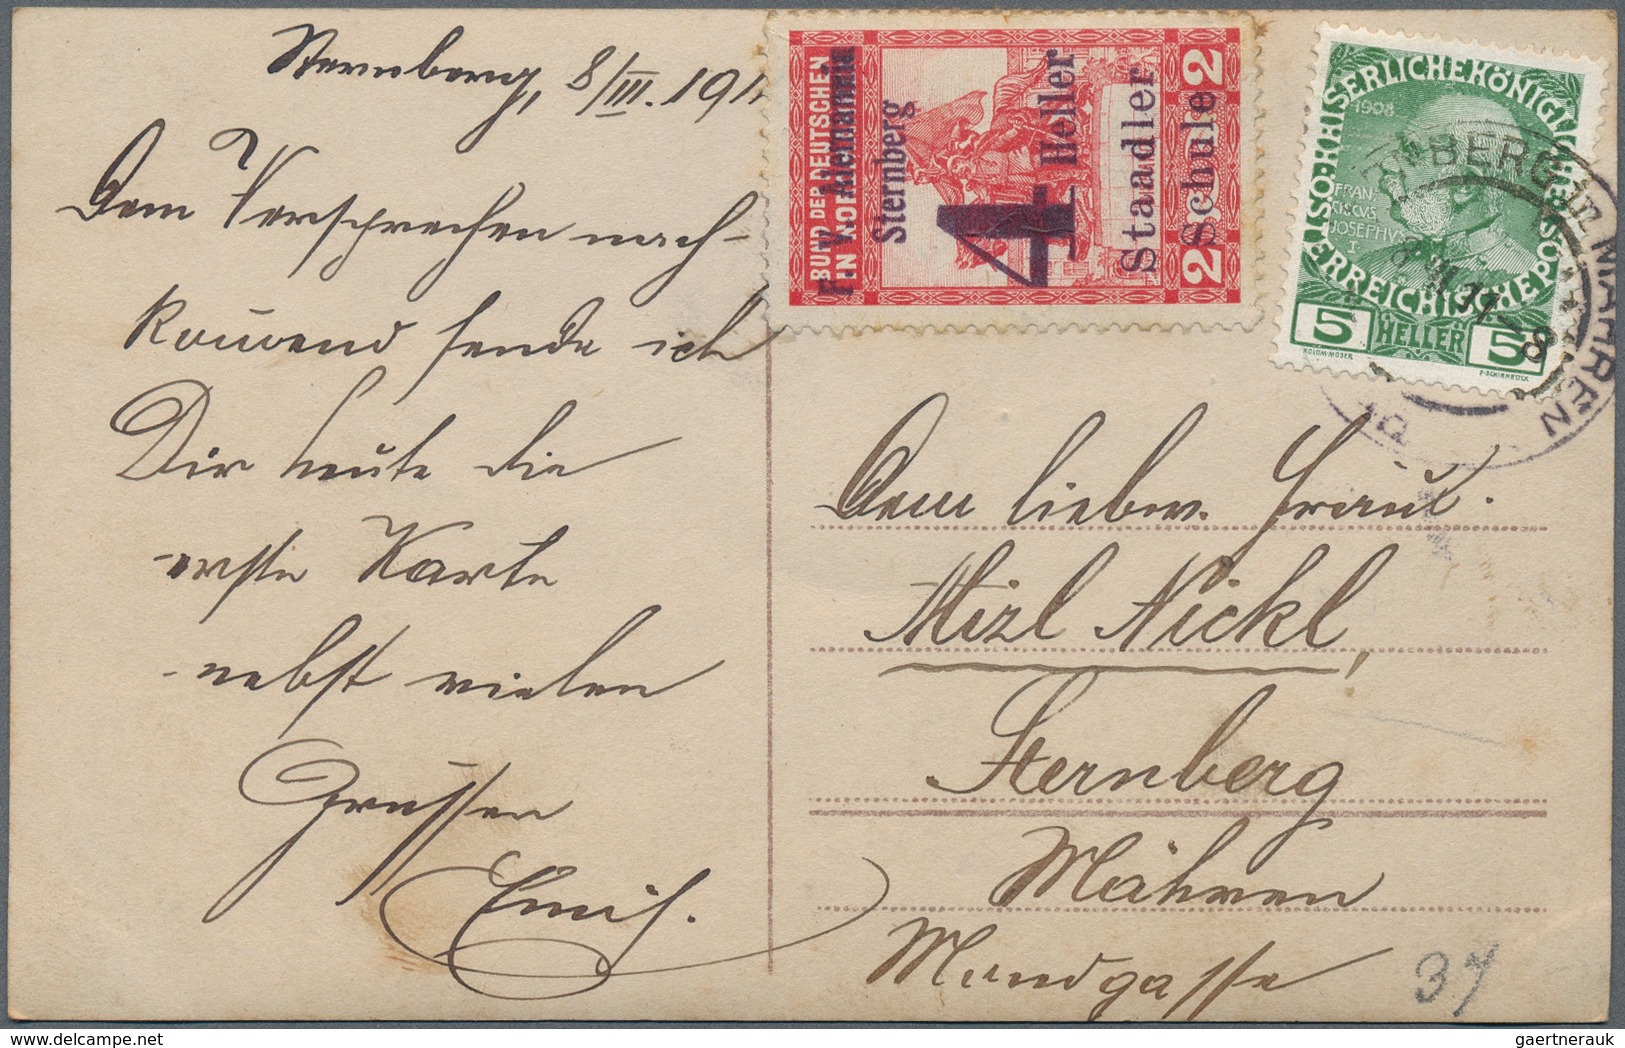 Sternberg, 8/III. 191
Dem Versprechen nach-
kommend sende ich
Dir heute die
erste Karte
nebst vielen
Grüssen
Emil.
BUND DER DEUTSCHEN
F. V. Alemannia
IN NO
Sternberg
4 Heller
Staadler
Schule
2 2
KAISERLICHEKÖNIGLICHEÖSTERREICHISCHEPOST
1908
FRAN-
CISCVS
JOSEPHVS
I.
5 HELLER 5
KOLOM·MOSER
F·SCHIRNBÖCK
RNBERG in MÄHREN
8 III 11-8
Dem liebw. Fräul.
Mizl Nickl,
Sternberg
Mähren
Mundgasse
37
gaertnerauk